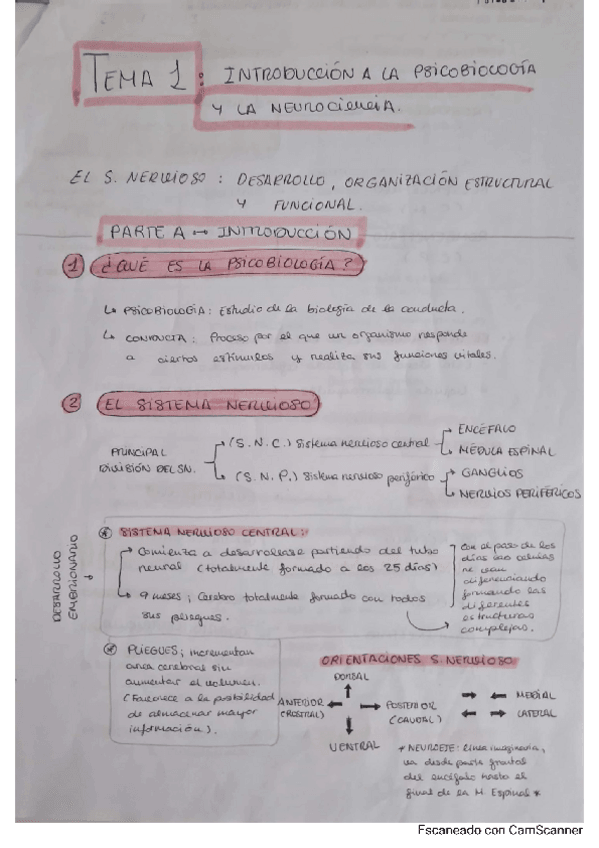 TEMA 1: INTRODUCCIÓN A LA PSICOBIOLOGÍA
Y LA NEUROCIENCIA.
EL S. NERVIOSO: DESARROLLO, ORGANIZACIÓN ESTRUCTURAL
Y FUNCIONAL.
PARTE A → INTRODUCCIÓN
1 ¿QUÉ ES LA PSICOBIOLOGÍA?
↳ PSICOBIOLOGÍA: Estudio de la biología de la conducta.
↳ CONDUCTA: Proceso por el que un organismo responde
a ciertos estímulos y realiza sus funciones vitales.
2 EL SISTEMA NERVIOSO
PRINCIPAL
DIVISIÓN DEL SN.
(S.N.C.) Sistema nervioso central
ENCÉFALO
MÉDULA ESPINAL
(S.N.P.) Sistema nervioso periférico
GANGLIOS
NERVIOS PERIFÉRICOS
DESARROLLO
EMBRIONARIO
SISTEMA NERVIOSO CENTRAL:
Comienza a desarrollarse partiendo del tubo
neural (totalmente formado a los 25 días)
9 meses; Cerebro totalmente formado con todos
sus pliegues.
Con el paso de los
días las células
se van
diferenciando
formando las
diferentes
estructuras
complejas.
PLIEGUES; incrementan
área cerebral sin
aumentar el volumen.
(Favorece a la posibilidad
de almacenar mayor
información).
ORIENTACIONES S. NERVIOSO
DORSAL
ANTERIOR
(ROSTRAL)
POSTERIOR
(CAUDAL)
VENTRAL
→ ← MEDIAL
← → LATERAL
* NEUROEJE: Línea imaginaria,
va desde parte frontal
del encéfalo hasta el
final de la M. Espinal *
Escaneado con CamScanner